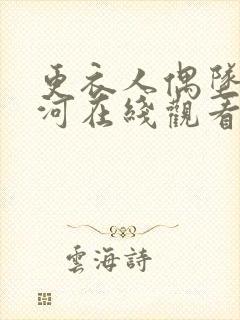 更衣人偶墜
河在綫觀看
雲海詩